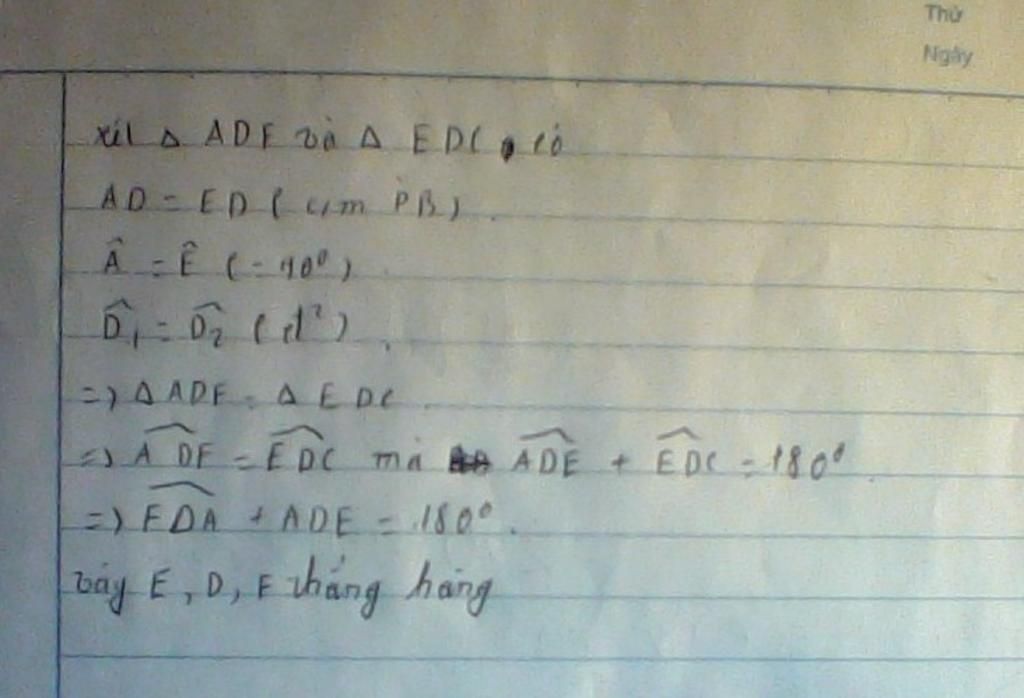 Thứ
Ngày
xét Δ ADF và Δ EDC có
AD = ED ( c/m PB )
Â = Ê ( = 90⁰ )
D̂₁ = D̂₂ ( đ² )
=> Δ ADF = Δ EDC
=> ADF = EDC mà ADE + EDC = 180⁰
=> FDA + ADE = 180⁰.
vậy E, D, F thẳng hàng